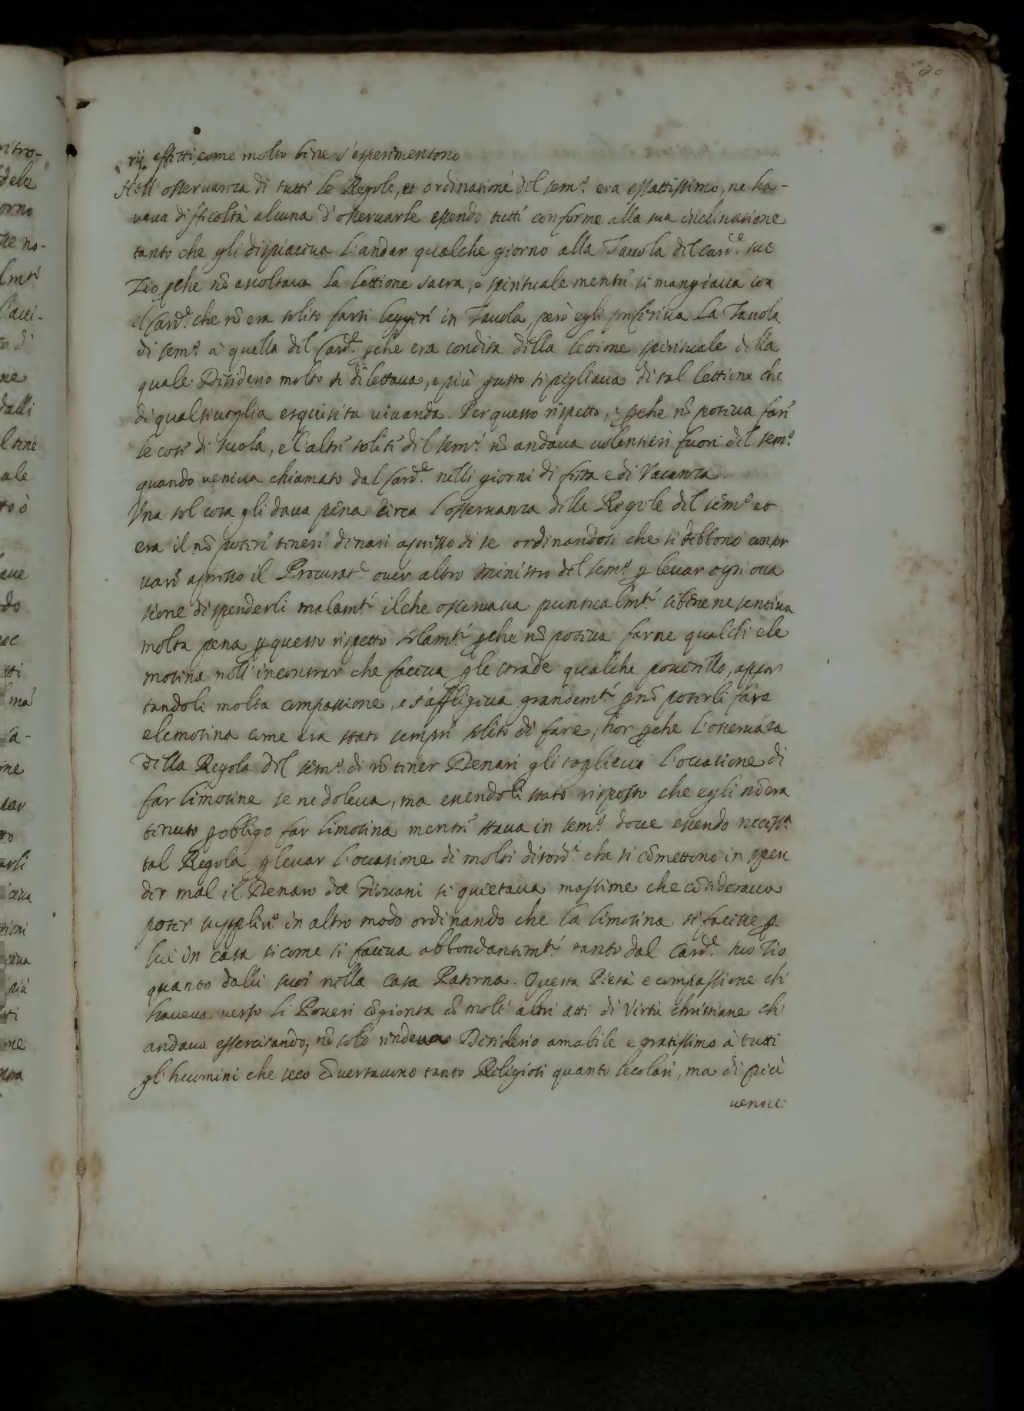 80
rij effetti come molto bene s'esperimentono
Nell' osseruanza di tutte le Regole, et ordinationi del sem.º era essattissimo, ne ha-
veua difficoltà alcuna d'osseruarle essendo tutte conforme alla sua inclinatione
tanto che gli dispiaceua l'andar qualche giorno alla Tauola del Card.e suo
Zio pche nō ascoltaua la lettione sacra, e spirituale mentre si mangiaua con
il Card.e che nō era solito farsi leggere in Tauola, però egli preferiua la Tauola
di sem.º à quella del Card.e pche era condita della lettione spirituale della
quale Desiderio molto si dilettaua, e più gusto si pigliaua di tal lettione che
di qualsiuoglia esquisita viuanda. Per questo rispetto, e pche nō poteua fare
le cose di scuola, e l'altre solite del sem.º nō andaua volentieri fuori del sem.º
quando veniua chiamato dal Card.e nelli giorni di festa e di Vacanza.
Vna sol cosa gli daua pena circa l'osseruanza delle Regole del sem.º et
era il nō potere tenere denari apresso di se ordinandosi che si debbono conser
uare apresso il Procurat.e ouer altro Ministro del sem.º p leuar ogni occa
sione di spenderli malam.te ilche osseruaua puntualm.te sebene ne sentiua
molta pena p questo rispetto solam.te pche nō poteua farne qualche ele
mosina nell' incontrar che faceua p le strade qualche pouerello, appor
tandoli molta compassione, e s'affligeua grandem.te p nō poterli fare
elemosina come era stato sempre solito di fare, hor pche l'osseruāza
della Regola del sem.º di nō tener Denari gli toglieua l'occasione di
far limosine se ne doleua, ma essendoli stato risposto che egli nō era
tenuto p obligo far limosina mentre staua in sem.º doue essendo necess.a
tal Regola p leuar l'occasione di molti disord.i che si cōmettono in spen
der mal il Denaro da Giouani si quietaua massime che cōsideraua
poter supplire in altro modo ordinando che la limosina si facesse p
lui in casa sicome si faceua abbondantem.te tanto dal Card.e suo Zio
quanto dalli suoi nella casa Paterna. Questa Pietà e compassione che
haueua verso li Poueri cōgionta cō molti altri atti di Virtù christiane che
andaua essercitando, nō solo rendeua Desiderio amabile e gratissimo à tutti
gl' huomini che seco cōuersauono tanto Religiosi quanto secolari, ma di più
uenne